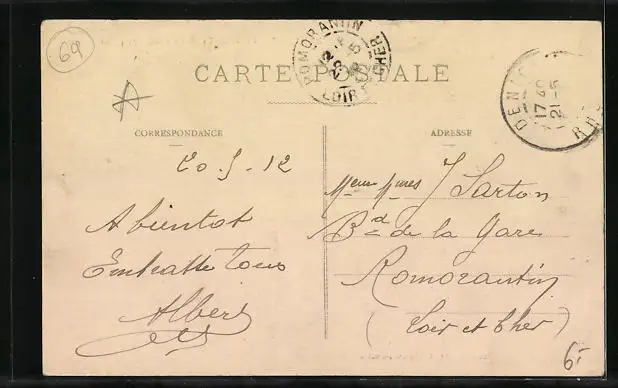 69
CARTE POSTALE
ROMORANTIN
LOIR ET CHER
17 48
21-5
CORRESPONDANCE
ADRESSE
20-5-12
A bientot
Embrasse tous
Albert
J Sarton
Bd de la Gare
Romorantin
(Loir et Cher)
6-